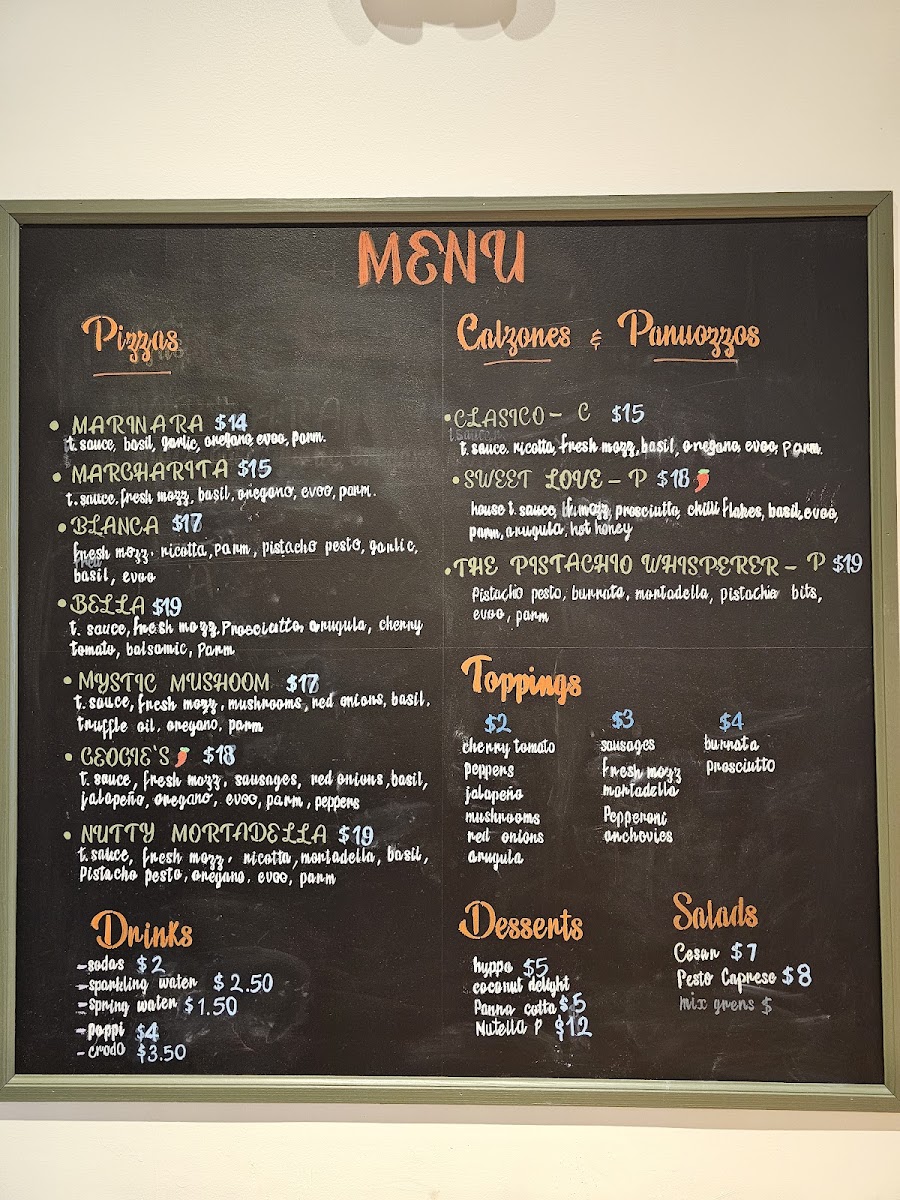 MENU
Pizzas
• MARINARA $14
t. sauce, basil, garlic, oregano, evoo, parm.
• MARGHARITA $15
t. sauce, fresh mozz, basil, oregano, evoo, parm.
• BLANCA $17
fresh mozz, ricotta, parm, pistacho pesto, garlic,
basil, evoo
• BELLA $19
t. sauce, fresh mozz, Prosciutto, arugula, cherry
tomato, balsamic, Parm
• MYSTIC MUSHOOM $17
t. sauce, fresh mozz, mushrooms, red onions, basil,
truffle oil, oregano, parm
• GEOGIE'S $18
t. sauce, fresh mozz, sausages, red onions, basil,
jalapeño, oregano, evoo, parm, peppers
• NUTTY MORTADELLA $19
t. sauce, fresh mozz, ricotta, mortadella, basil,
Pistacho pesto, oregano, evoo, parm
Drinks
- sodas $2
- sparkling water $2.50
- spring water $1.50
- poppi $4
- crodo $3.50
Calzones & Panuozzos
• CLASICO - C $15
t. sauce, ricotta, fresh mozz, basil, oregano, evoo, parm.
• SWEET LOVE - P $18
house t. sauce, mozz, prosciutto, chilli flakes, basil, evoo,
parm, arugula, hot honey
• THE PISTACHIO WHISPERER - P $19
Pistachio pesto, burrata, mortadella, pistachio bits,
evoo, parm
Toppings
$2
cherry tomato
peppers
jalapeño
mushrooms
red onions
arugula
$3
sausages
fresh mozz
mortadella
Pepperoni
anchovies
$4
burrata
prosciutto
Desserts
hyppo $5
coconut delight
Panna cotta $5
Nutella P $12
Salads
Cesar $7
Pesto Caprese $8
mix grens $